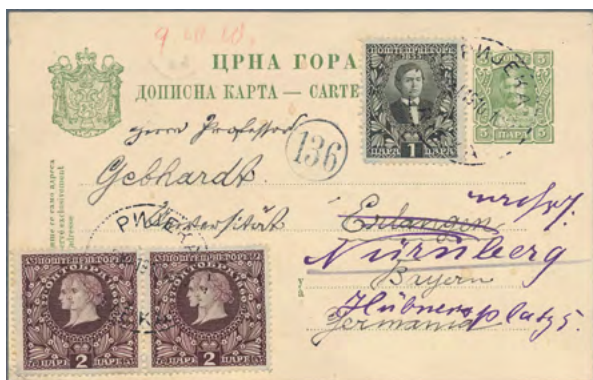 9.10.10.
ЦРНА ГОРА
ДОПИСНА КАРТА — CARTE
Herrn Professor
136
Gebhardt.
Universität
Erlangen
Nürnberg
Bayern
Hübnersplatz 5.
Germania
ПОШТЕ ЦРНЕ ГОРЕ
ПАРА 1 ПАРА
5 ПАРА 5
РИЈЕКА
РИЈЕКА
ПОШТЕ ЦРНЕ ГОРЕ
ПАРЕ 2 ПАРЕ
ПОШТЕ ЦРНЕ ГОРЕ
ПАРЕ 2 ПАРЕ